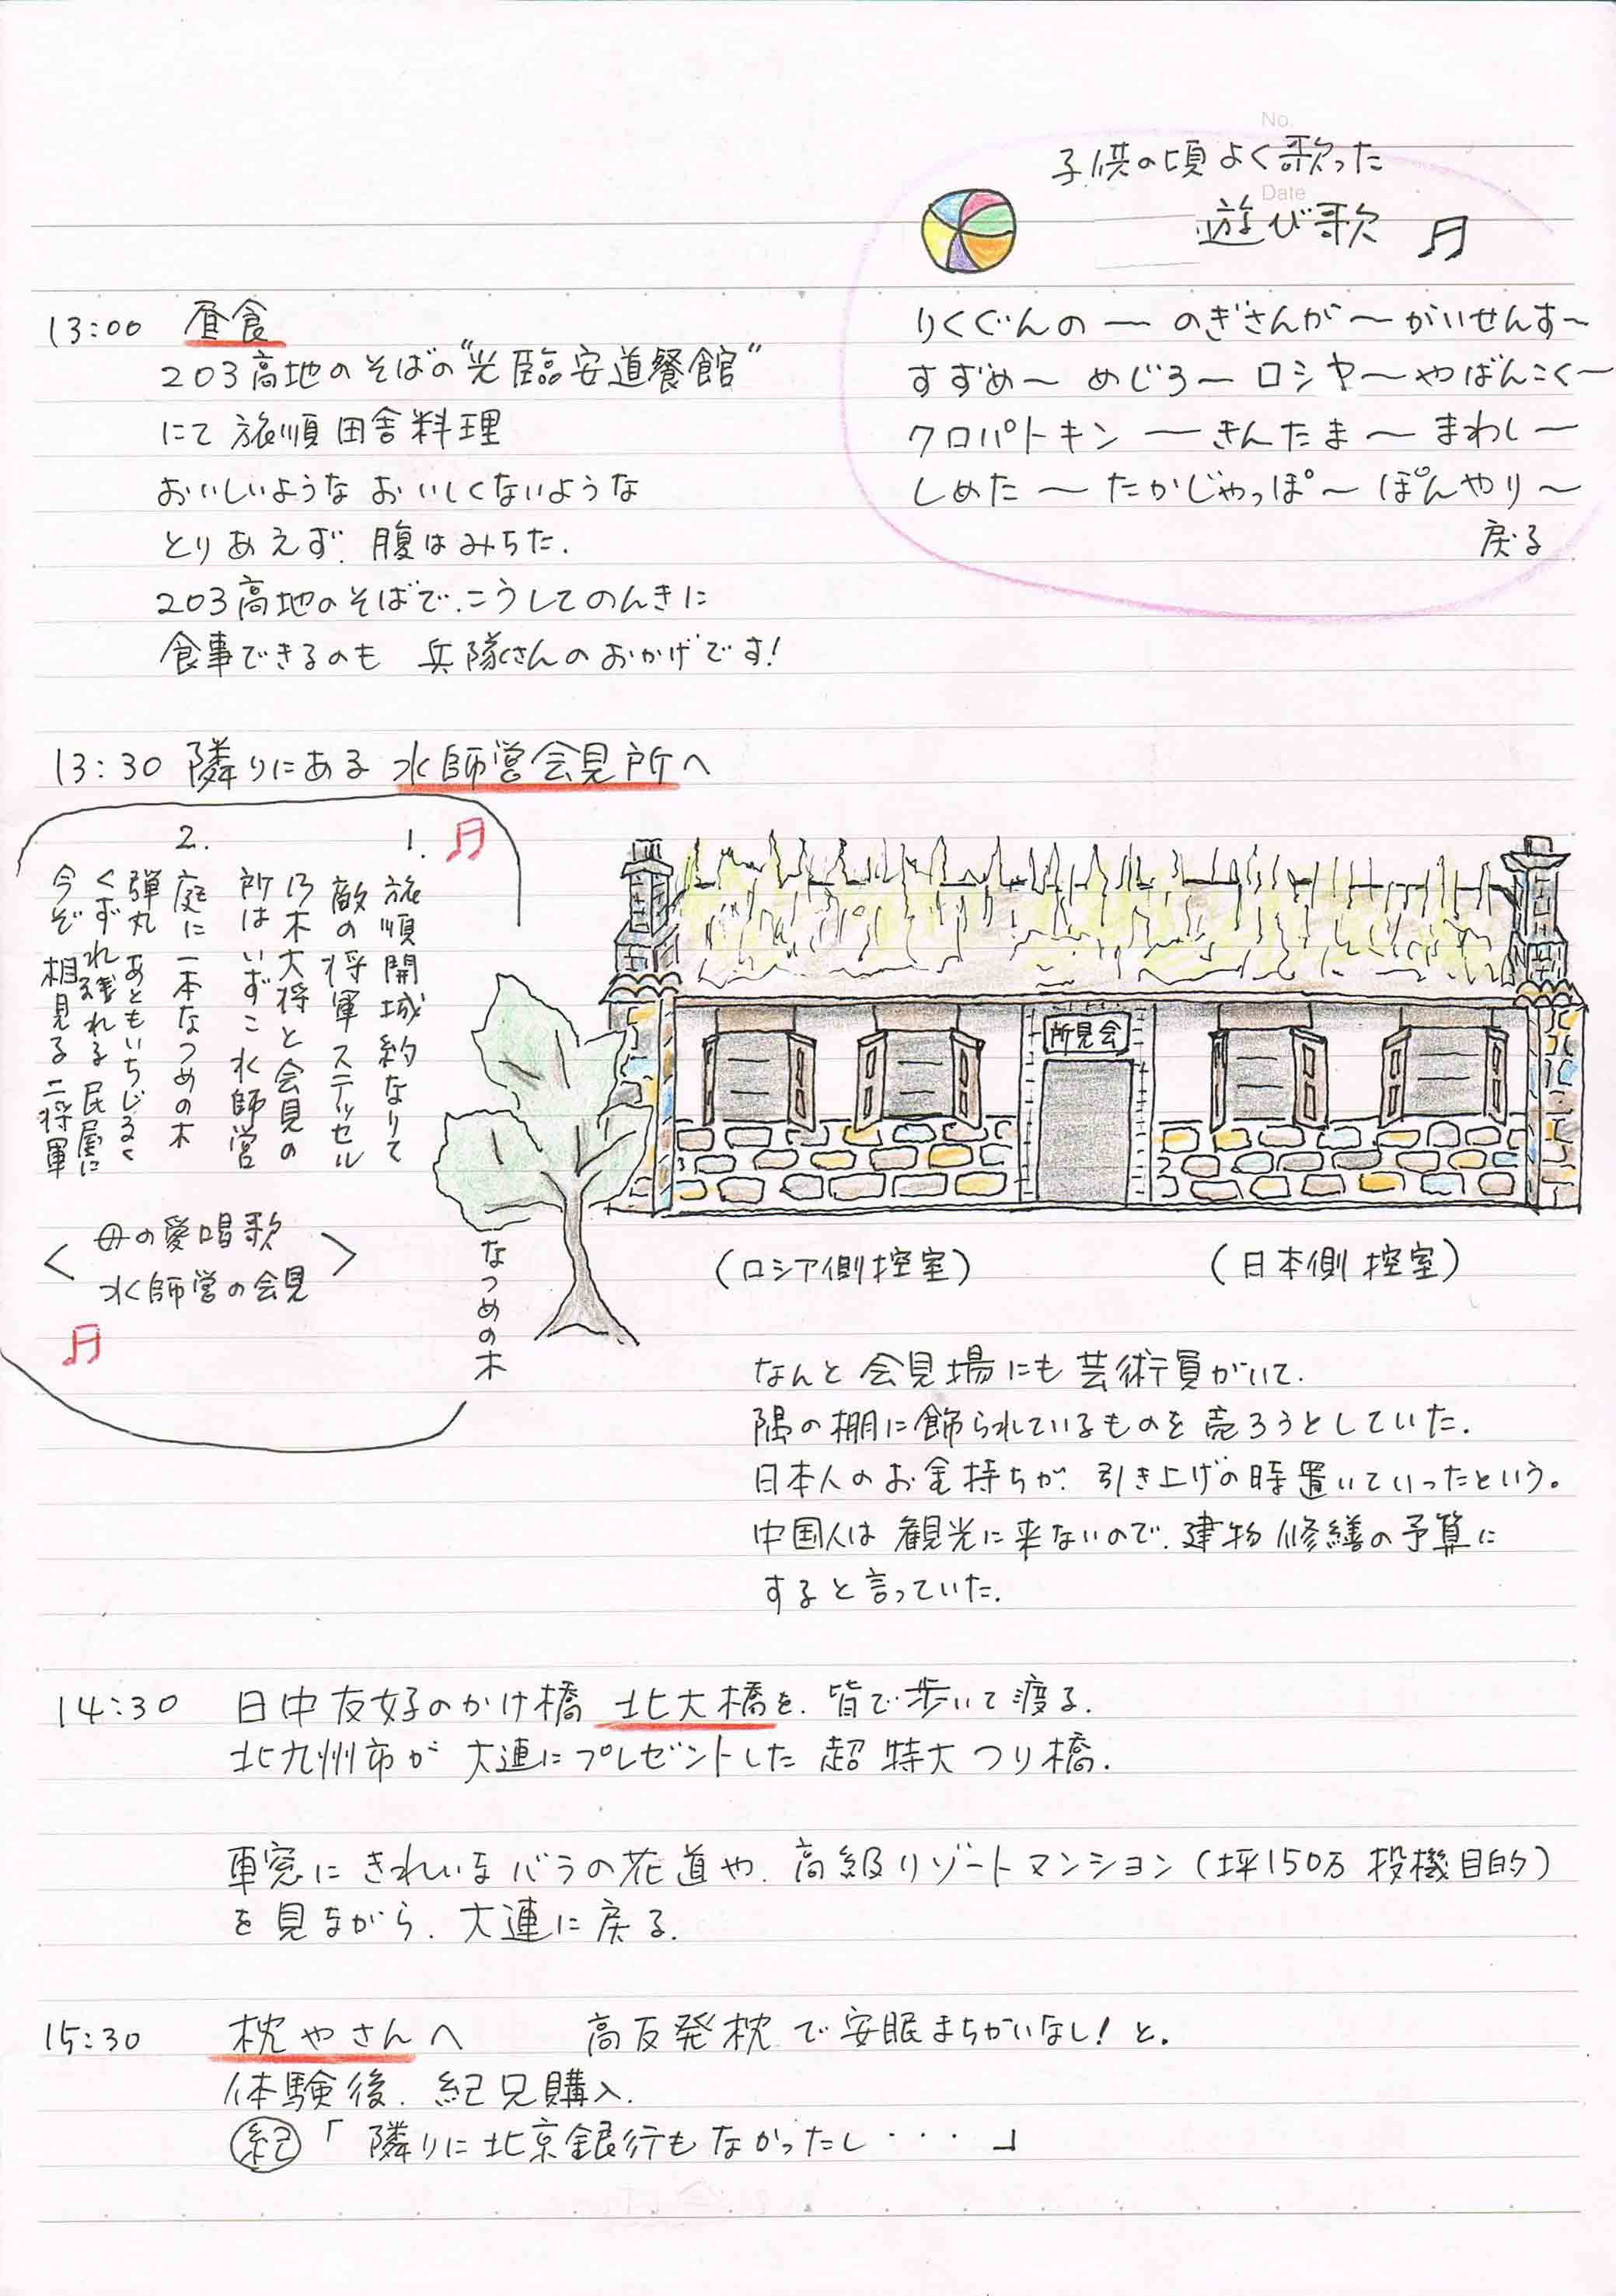 No.
Date
子供の頃よく歌った
遊び歌
りくぐんの ー のぎさんが〜がいせんす〜
すずめ〜 めじろ〜 ロシヤ〜やばんこく〜
クロパトキン ー きんたま 〜 まわし 〜
しめた 〜 たかじゃっぽ〜 ぽんやり 〜
戻る
13:00 昼食
203高地のそばの“光臨安道餐館”
にて 旅順田舎料理
おいしいような おいしくないような
とりあえず、腹はみちた.
203高地のそばで、こうしてのんきに
食事できるのも 兵隊さんのおかげです!
13:30 隣りにある 水師営会見所へ
1.
旅順開城約なりて
敵の将軍ステッセル
乃木大将と会見の
所はいずこ水師営
2.
庭に一本なつめの木
弾丸あともいちじるく
くずれ残れる民屋に
今ぞ相見る二将軍
<母の愛唱歌
水師営の会見>
なつめの木
所見会
(ロシア側控室)
(日本側控室)
なんと 会見場にも 芸術員がいて.
隅の棚に飾られているものを売ろうとしていた.
日本人のお金持ちが、引き上げの時置いていったという。
中国人は 観光に来ないので、建物修繕の予算に
すると言っていた.
14:30 日中友好のかけ橋 北大橋を、皆で歩いて渡る.
北九州市が 大連にプレゼントした 超特大つり橋.
車窓に きれいなバラの花道や、高級リゾートマンション(坪150万 投機目的)
を見ながら、大連に戻る.
15:30 枕やさんへ 高反発枕で安眠まちがいなし! と.
体験後、紀兄購入.
紀「隣りに北京銀行もなかったし・・・」